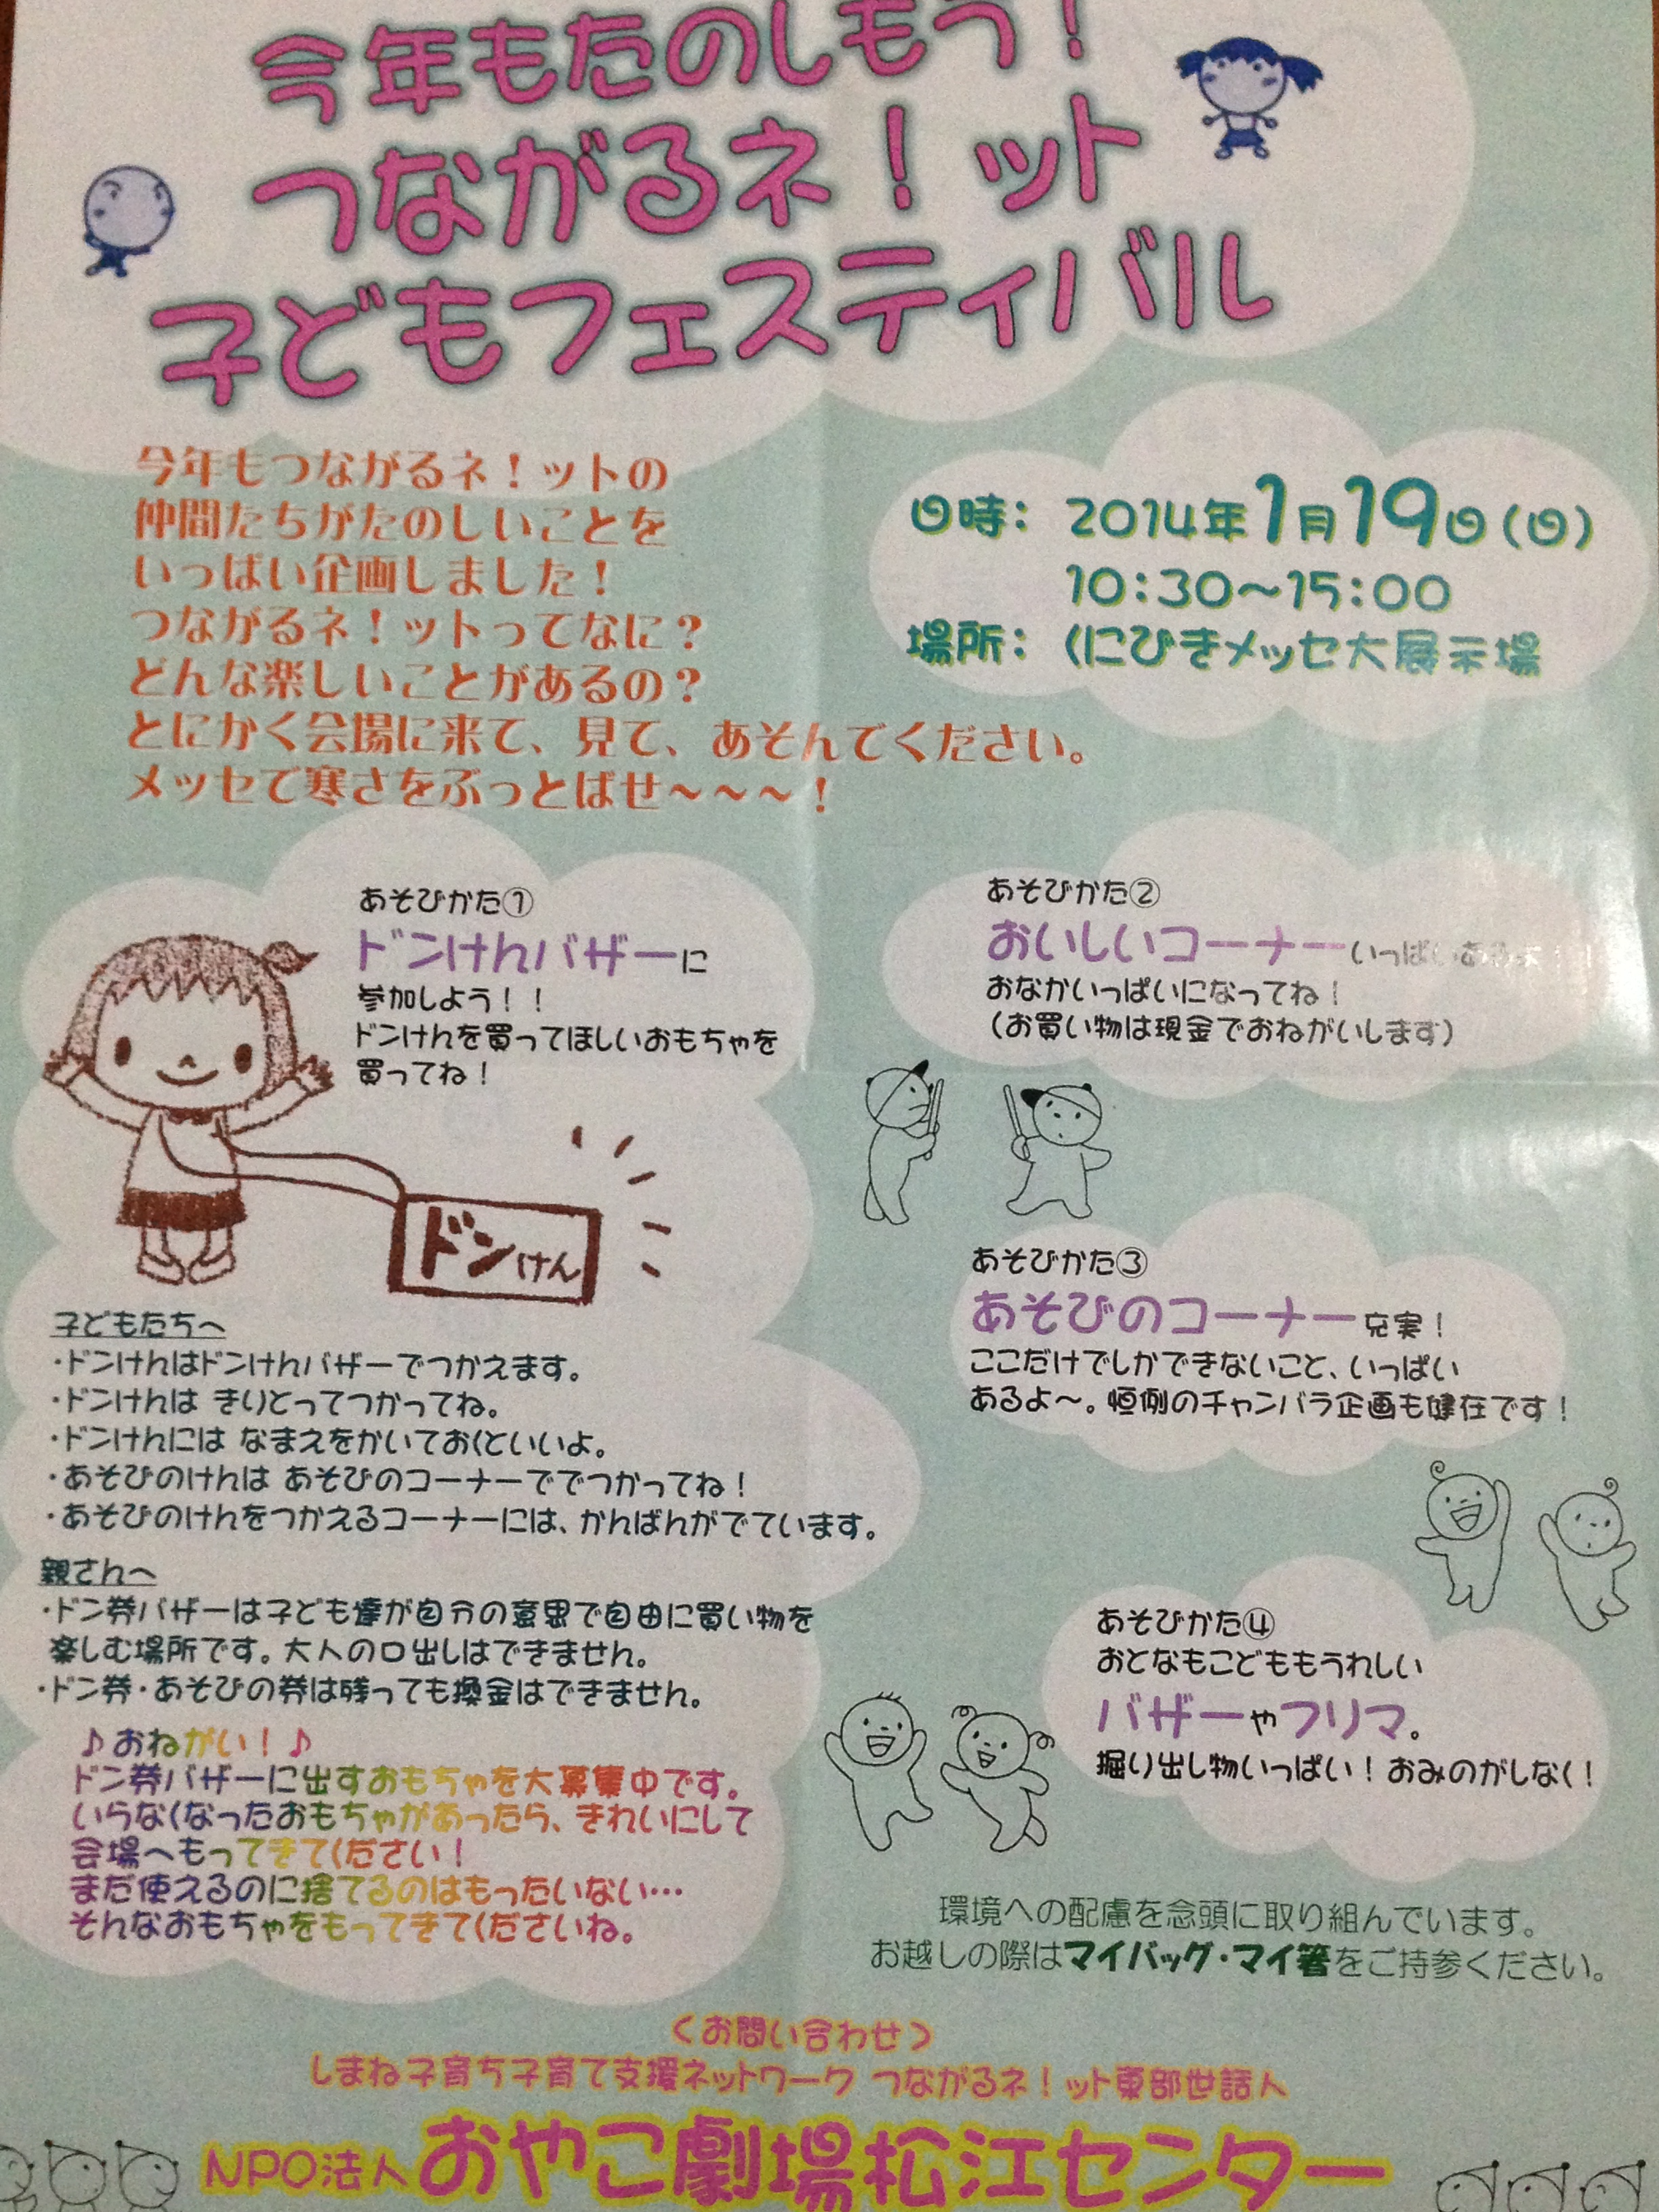 今年もたのしもう！
つながるネ！ット
子どもフェスティバル
今年もつながるネ！ットの
仲間たちがたのしいことを
いっぱい企画しました！
つながるネ！ットってなに？
どんな楽しいことがあるの？
とにかく会場に来て、見て、あそんでください。
メッセで寒さをぶっとばせ～～～！
日時： 2014年1月19日（日）
10：30～15：00
場所： くにびきメッセ大展示場
あそびかた①
ドンけんバザーに
参加しよう！！
ドンけんを買ってほしいおもちゃを
買ってね！
ドンけん
子どもたちへ
・ドンけんはドンけんバザーでつかえます。
・ドンけんは きりとってつかってね。
・ドンけんには なまえをかいておくといいよ。
・あそびのけんは あそびのコーナーででつかってね！
・あそびのけんをつかえるコーナーには、かんばんがでています。
親さんへ
・ドン券バザーは子ども達が自分の意思で自由に買い物を
楽しむ場所です。大人の口出しはできません。
・ドン券・あそびの券は残っても換金はできません。
♪おねがい！♪
ドン券バザーに出すおもちゃを大募集中です。
いらなくなったおもちゃがあったら、きれいにして
会場へもってきてください！
まだ使えるのに捨てるのはもったいない…
そんなおもちゃをもってきてくださいね。
あそびかた②
おいしいコーナーいっぱいあるよ！
おなかいっぱいになってね！
（お買い物は現金でおねがいします）
あそびかた③
あそびのコーナー充実！
ここだけでしかできないこと、いっぱい
あるよ～。恒例のチャンバラ企画も健在です！
あそびかた④
おとなもこどももうれしい
バザーやフリマ。
掘り出し物いっぱい！おみのがしなく！
環境への配慮を念頭に取り組んでいます。
お越しの際はマイバッグ・マイ箸をご持参ください。
＜お問い合わせ＞
しまね子育ち子育て支援ネットワーク つながるネ！ット東部世話人
NPO法人 おやこ劇場松江センター